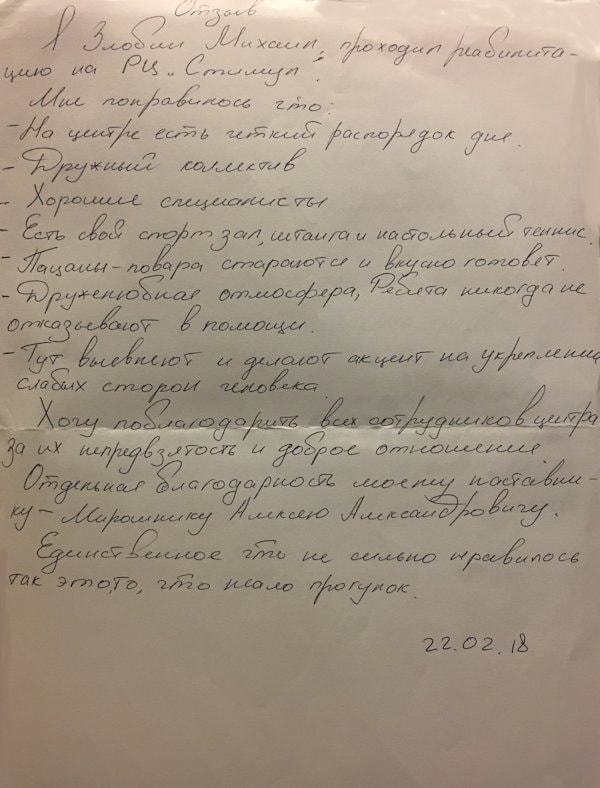 Отзыв
Я Злобин Михаил, проходил реабилита-
цию на РЦ „Стимул".
Мне понравилось что:
- На центре есть четкий распорядок дня.
- Дружный коллектив
- Хорошие специалисты
- Есть свой спорт зал, штанга и настольный теннис.
- Пацаны-повара стараются и вкусно готовят.
- Дружелюбная отмосфера, Ребята никогда не
отказывают в помощи.
- Тут выевляют и делают акцент на укреплении
слабых сторон человека.
Хочу поблагодарить всех сотрудников центра
за их непредвзятость и доброе отношение.
Отдельная благодарность моему наставни-
ку - Мирошнику Алексею Александровичу.
Единственное что не сильно нравилось
так это то, что мало прогулок.
22.02.18